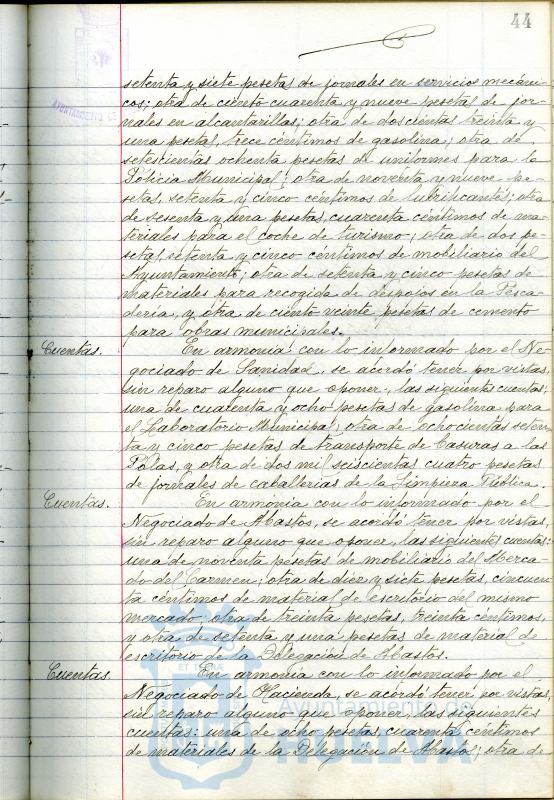 44
setenta y siete pesetas de jornales en servicios mecáni-
cos; otra de ciento cuarenta y nueve pesetas de jor-
nales en alcantarillas; otra de doscientas treinta y
una pesetas, trece céntimos de gasolina; otra de
setescientas ochenta pesetas de uniformes para la
Policia Municipal; otra de noventa y nueve pe-
setas, setenta y cinco céntimos de lubrificantes; otra
de sesenta y una pesetas, cuarenta céntimos de ma-
teriales para el coche de turismo; otra de dos pe-
setas, setenta y cinco céntimos de mobiliario del
Ayuntamiento; otra de setenta y cinco pesetas de
materiales para recogida de despojos en la Pesca-
deria, y otra de ciento veinte pesetas de cemento
para obras municipales.
Cuentas. En armonia con lo informado por el Ne-
gociado de Sanidad, se acordó tener por vistas,
sin reparo alguno que oponer, las siguientes cuentas:
una de cuarenta y ocho pesetas de gasolina para
el Laboratorio Municipal; otra de ochocientas seten-
ta y cinco pesetas de transporte de basuras a las
Polas, y otra de dos mil seiscientas cuatro pesetas
de jornales de caballerias de la Limpieza Pública.
Cuentas. En armonia con lo informado por el
Negociado de Abastos, se acordó tener por vistas,
sin reparo alguno que oponer, las siguientes cuentas:
una de noventa pesetas de mobiliario del Merca-
do del Carmen; otra de diez y siete pesetas, cincuen-
ta céntimos de material de escritorio del mismo
mercado; otra de treinta pesetas, treinta céntimos,
y otra de setenta y una pesetas de material de
escritorio de la Delegación de Abastos.
Cuentas. En armonia con lo informado por el
Negociado de Hacienda, se acordó tener por vistas,
sin reparo alguno que oponer, las siguientes
cuentas: una de ocho pesetas, cuarenta céntimos
de materiales de la Delegación de Abastos; otra de
AYUNTAMIENTO
Ayuntamiento de
HUELVA